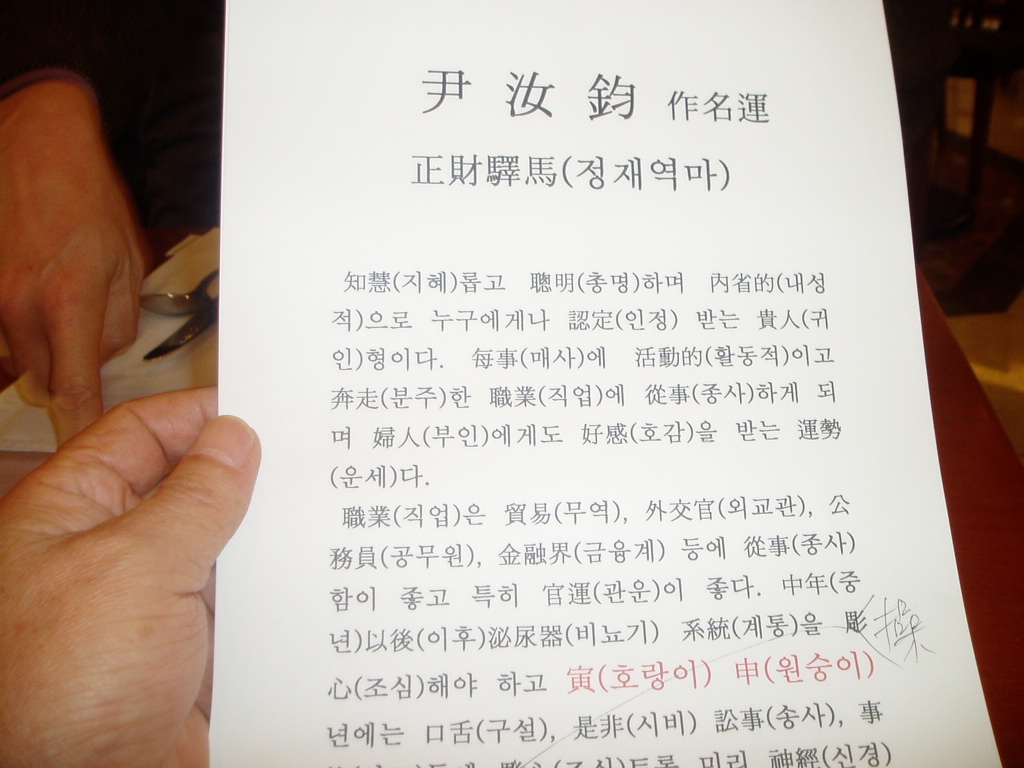 尹汝鈞 作名運
正財驛馬(정재역마)
知慧(지혜)롭고 聰明(총명)하며 內省的(내성
적)으로 누구에게나 認定(인정) 받는 貴人(귀
인)형이다. 每事(매사)에 活動的(활동적)이고
奔走(분주)한 職業(직업)에 從事(종사)하게 되
며 婦人(부인)에게도 好感(호감)을 받는 運勢
(운세)다.
職業(직업)은 貿易(무역), 外交官(외교관), 公
務員(공무원), 金融界(금융계) 등에 從事(종사)
함이 좋고 특히 官運(관운)이 좋다. 中年(중
년)以後(이후)泌尿器(비뇨기) 系統(계통)을 彫 操
心(조심)해야 하고 寅(호랑이) 申(원숭이)
년에는 口舌(구설), 是非(시비) 訟事(송사), 事
미리 神經(신경)